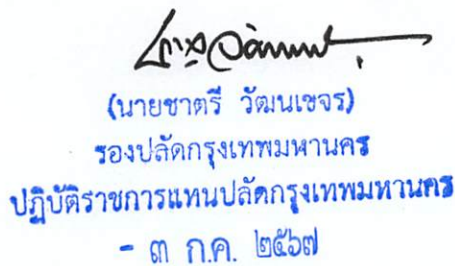 (นายชาตรี วัฒนเขจร)
รองปลัดกรุงเทพมหานคร
ปฏิบัติราชการแทนปลัดกรุงเทพมหานคร
- ๓ ก.ค. ๒๕๖๗